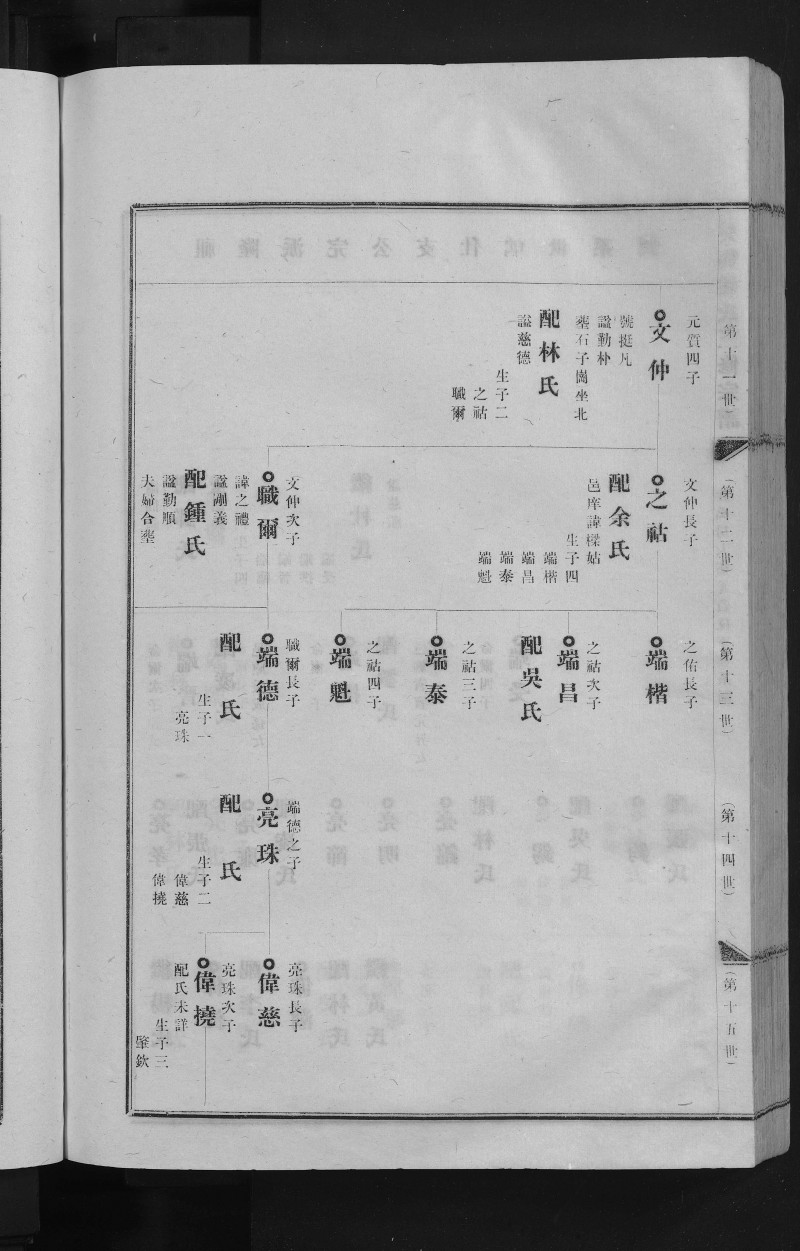 第十一世
元質四子
文仲
號挺凡
諡勤朴
葬石子崗坐北
配林氏
諡慈德
生子二
之祜
職爾
(第十二世)
文仲長子
之祜
邑庠諱樑姑
配余氏
生子四
端楷
端昌
端泰
端魁
文仲次子
職爾
諱之禮
諡剛義
配鍾氏
諡勤順
夫婦合葬
(第十三世)
之佑長子
端楷
之祜次子
端昌
配吳氏
之祜三子
端泰
之祜四子
端魁
職爾長子
端德
配 氏
生子一
亮珠
(第十四世)
端德之子
亮珠
配 氏
生子二
偉慈
偉撓
(第十五世)
亮珠長子
偉慈
亮珠次子
偉撓
配氏未詳
生子三
肇欽